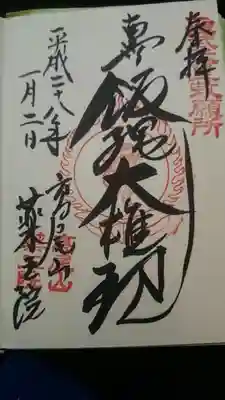 奉拝
飯縄大権現
平成二十八年
一月二日
高尾山
薬王院